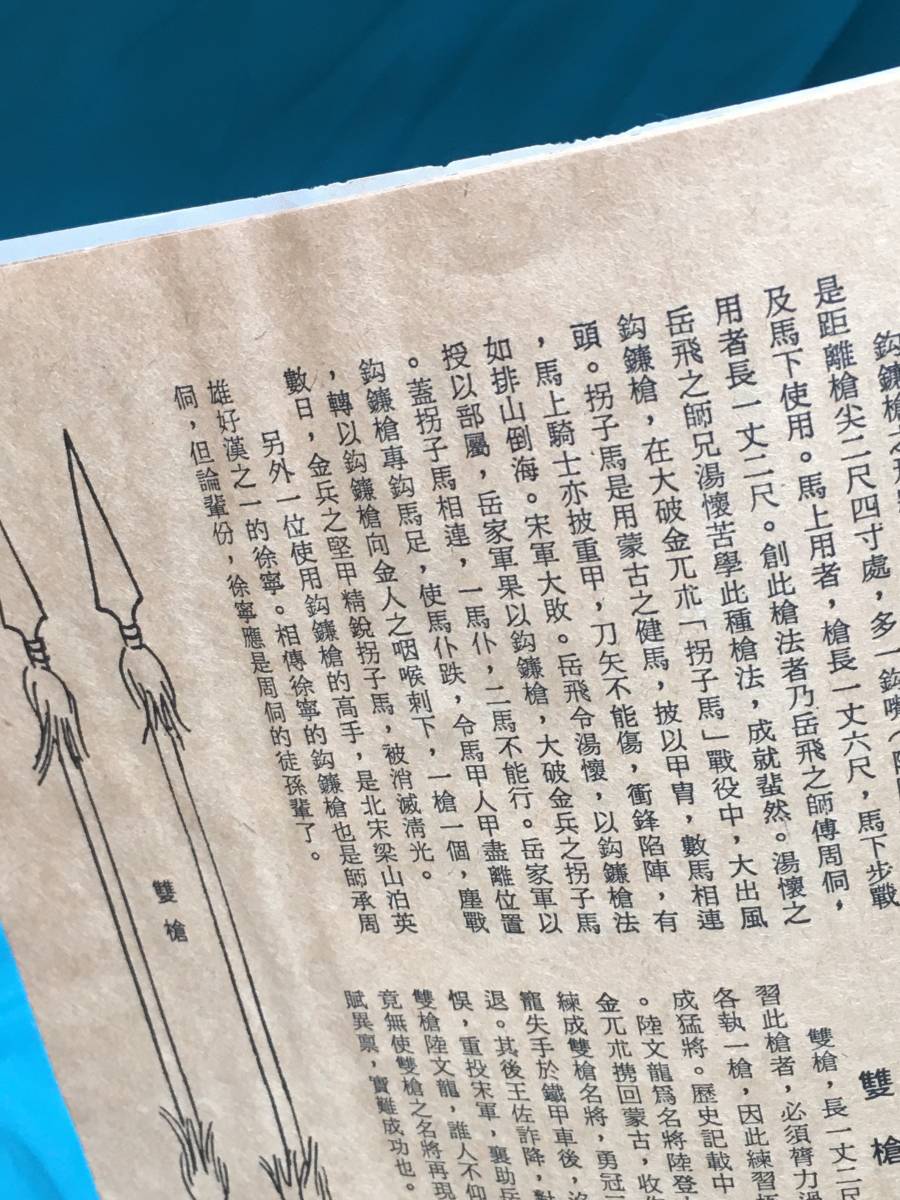 是距離槍尖二尺四寸處，多一鈎嘴
及馬下使用。馬上用者，槍長一丈六尺，馬下步戰
用者長一丈二尺。創此槍法者乃岳飛之師傅周侗，
岳飛之師兄湯懷苦學此種槍法，成就蜚然。湯懷之
鈎鐮槍，在大破金兀朮「拐子馬」戰役中，大出風
頭。拐子馬是用蒙古之健馬，披以甲胄，數馬相連
，馬上騎士亦披重甲，刀矢不能傷，衝鋒陷陣，有
如排山倒海。宋軍大敗。岳飛令湯懷，以鈎鐮槍法
授以部屬，岳家軍果以鈎鐮槍，大破金兵之拐子馬
。蓋拐子馬相連，一馬仆，二馬不能行。岳家軍以
鈎鐮槍專鈎馬足，使馬仆跌，令馬甲人甲盡離位置
，轉以鈎鐮槍向金人之咽喉刺下，一槍一個，塵戰
數日，金兵之堅甲精銳拐子馬，被消滅淸光。
另外一位使用鈎鐮槍的高手，是北宋梁山泊英
雄好漢之一的徐寧。相傳徐寧的鈎鐮槍也是師承周
侗，但論輩份，徐寧應是周侗的徒孫輩了。
雙槍
雙槍
雙槍，長一丈二尺
習此槍者，必須膂力過
各執一槍，因此練習
成猛將。歷史記載中
。陸文龍爲名將陸登
金兀朮携回蒙古，收
練成雙槍名將，勇冠三
龍失手於鐵甲車後，
退。其後王佐詐降，
悞，重投宋軍，襄助岳
雙槍陸文龍，誰人不仰
竟無使雙槍之名將再現
賦異禀，實難成功也。